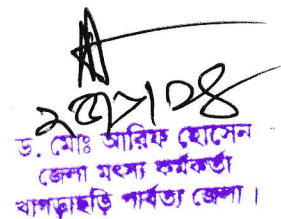 ড. মোঃ আরিফ হোসেন
জেলা মৎস্য কর্মকর্তা
খাগড়াছড়ি পার্বত্য জেলা।